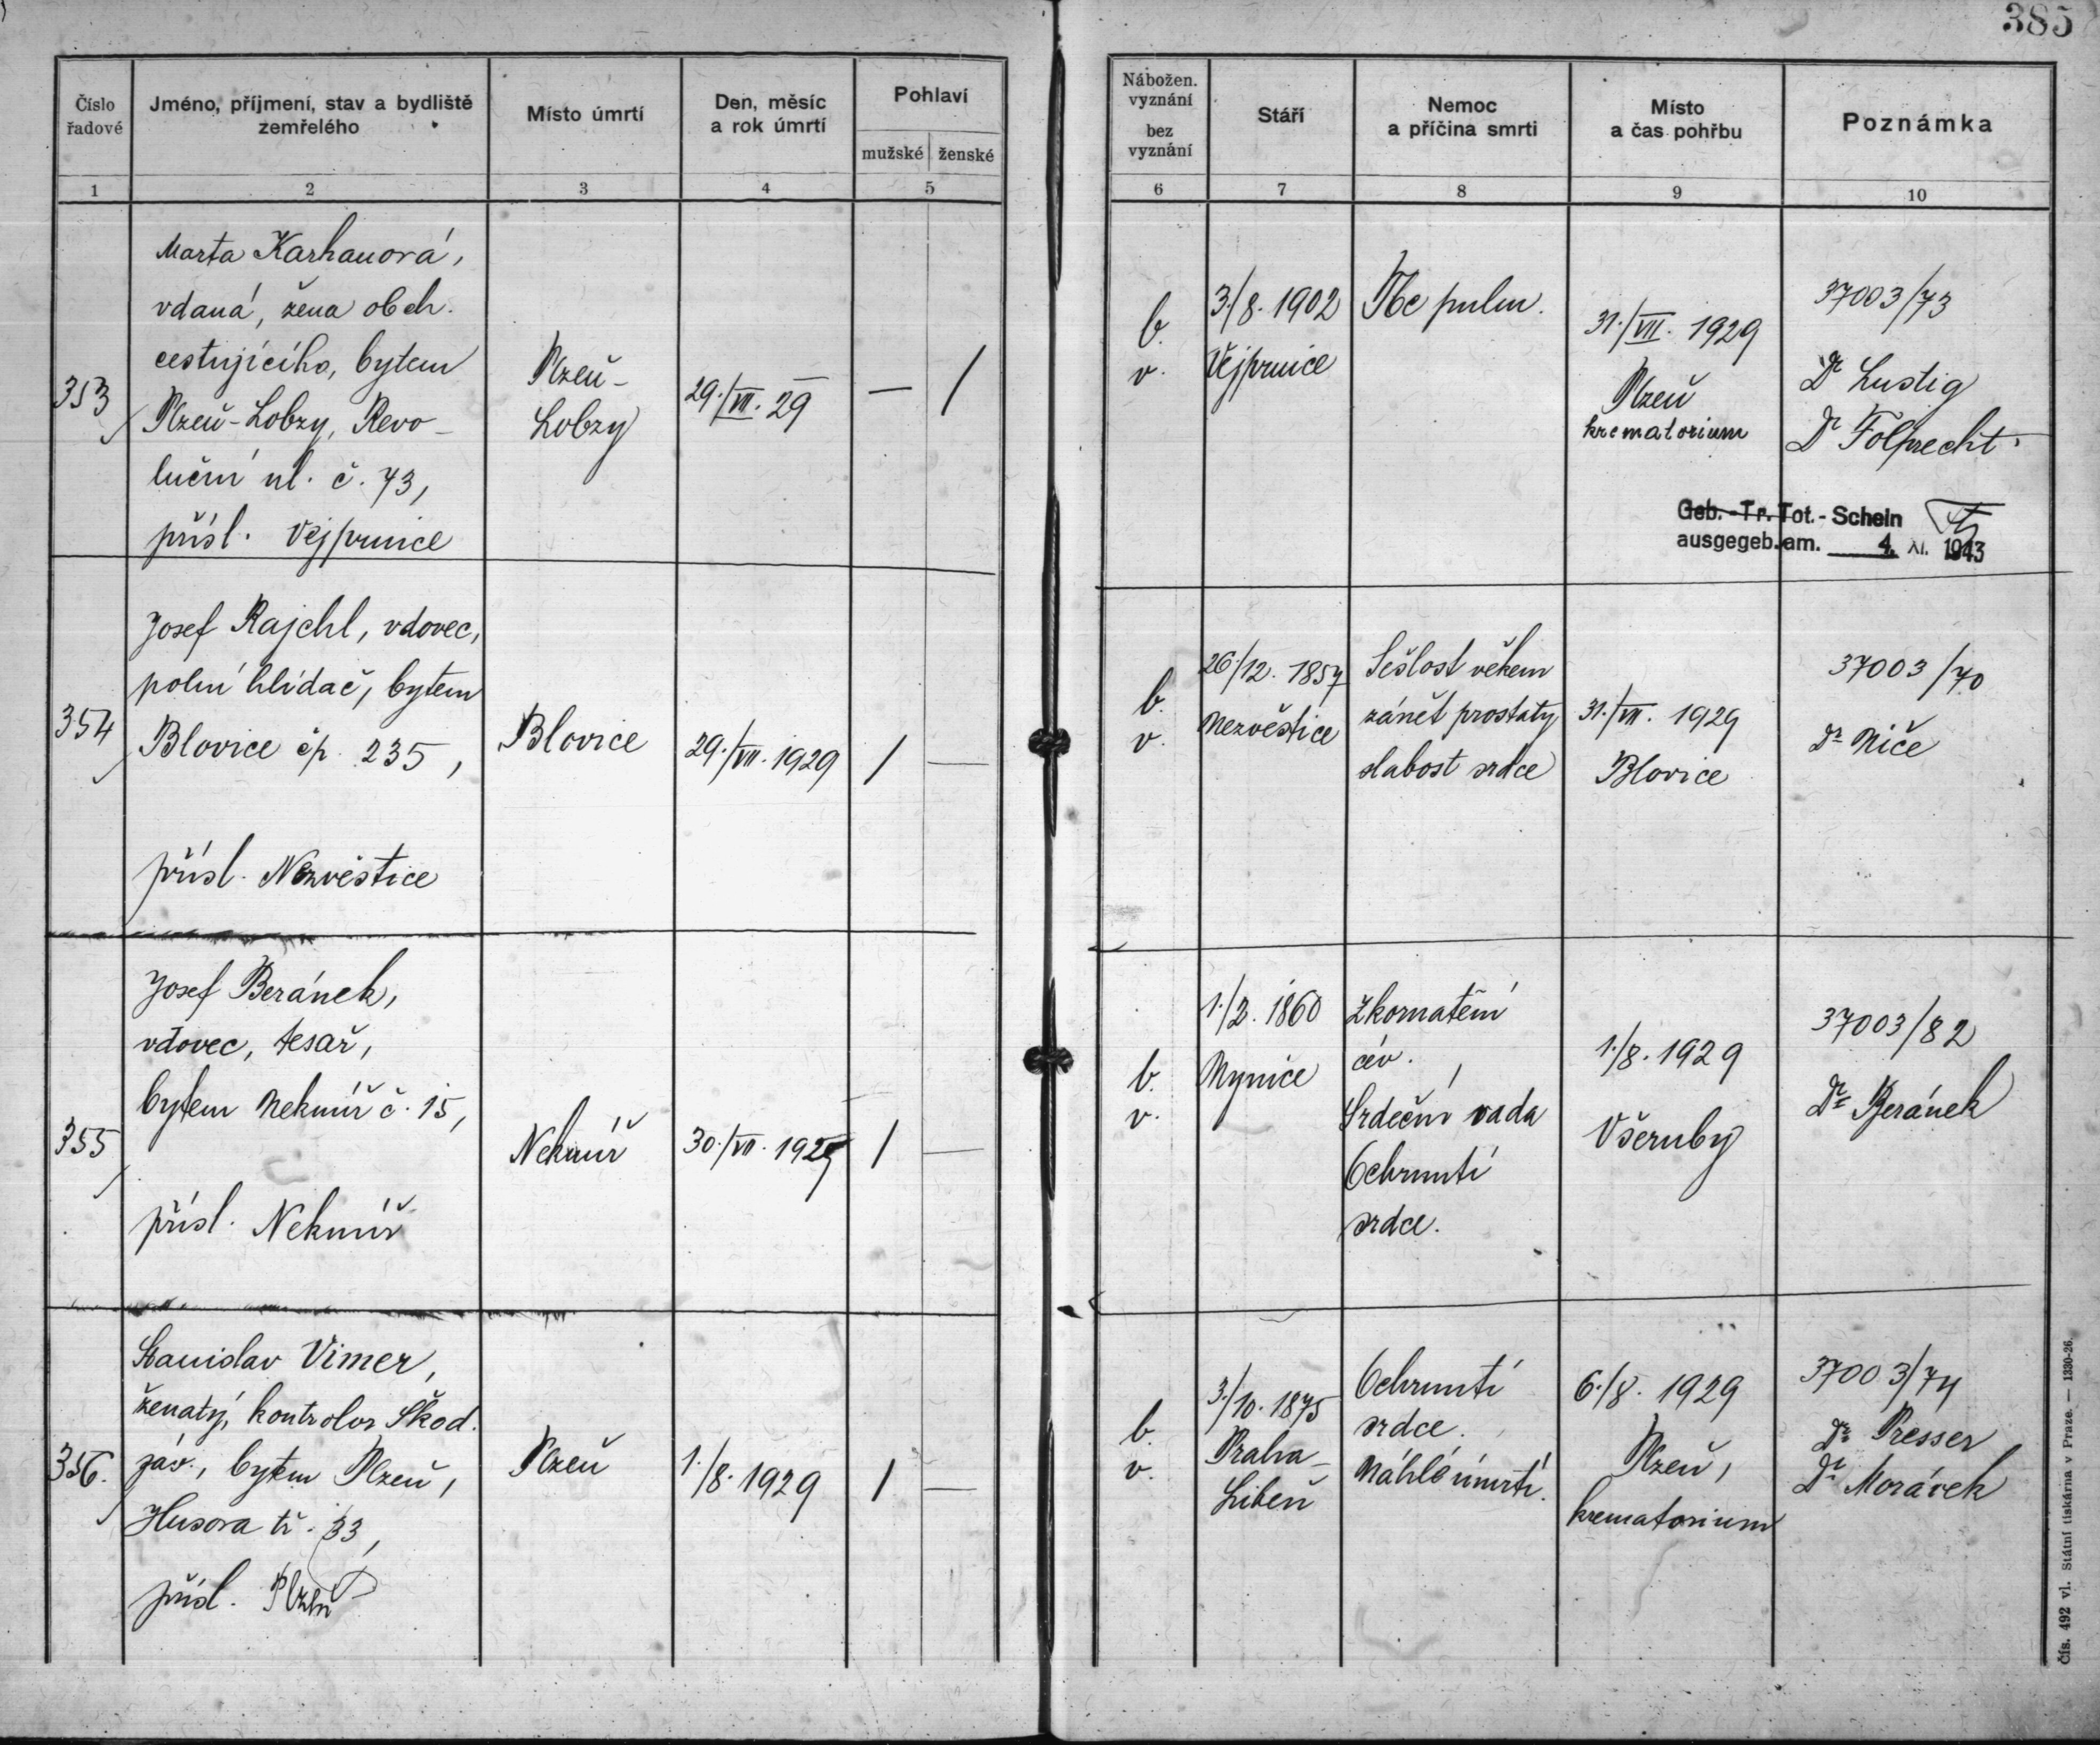 385
Číslo řadové
Jméno, příjmení, stav a bydliště zemřelého
Místo úmrtí
Den, měsíc a rok úmrtí
Pohlaví
mužské
ženské
Nábožen. vyznání
bez vyznání
Stáří
Nemoc a příčina smrti
Místo a čas pohřbu
Poznámka
1
2
3
4
5
6
7
8
9
10
353
Marta Karhanová,
vdaná, žena obch.
cestujícího, bytem
Plzeň-Lobzy, Revo-
luční ul. č. 73,
přísl. Vejprnice
Plzeň-
Lobzy
29./VII. 29
—
/
b.
v.
3./8. 1902
Vejprnice
Tbc pulm.
31./VII. 1929
Plzeň
krematorium
37003/73
Dr Lustig
Dr Folprecht.
Geb.-Tr. Tot.- Schein
ausgegeb. am. 4. XI. 1943
354
Josef Rajchl, vdovec,
polní hlídač, bytem
Blovice čp. 235,
přísl. Nezvěstice
Blovice
29./VII. 1929
/
—
b.
v.
26/12. 1857
Nezvěstice
Sešlost věkem
zánět prostaty
slabost srdce
31./VII. 1929
Blovice
37003/70
Dr Niče
355
Josef Beránek,
vdovec, tesař,
bytem Nekmíř č. 15,
přísl. Nekmíř
Nekmíř
30./VII. 1929
/
—
b.
v.
1860
Mynice
Zkornatění
cév.
Srdeční vada
Ochrnutí
srdce.
1./8. 1929
Všeruby
37003/82
Dr Beránek
356.
Stanislav Vimer,
ženatý, kontrolor Škod.
záv., bytem Plzeň,
Husova tř. 33,
přísl. Plzeň
Plzeň
1./8. 1929
/
—
b.
v.
3./10. 1875
Praha-
Libeň
Ochrnutí
srdce.
Náhlé úmrtí.
6./8. 1929
Plzeň,
krematorium
37003/74
Dr Presser
Dr Morávek
čís. 492 vl. Státní tiskárna v Praze. — 1330-26.